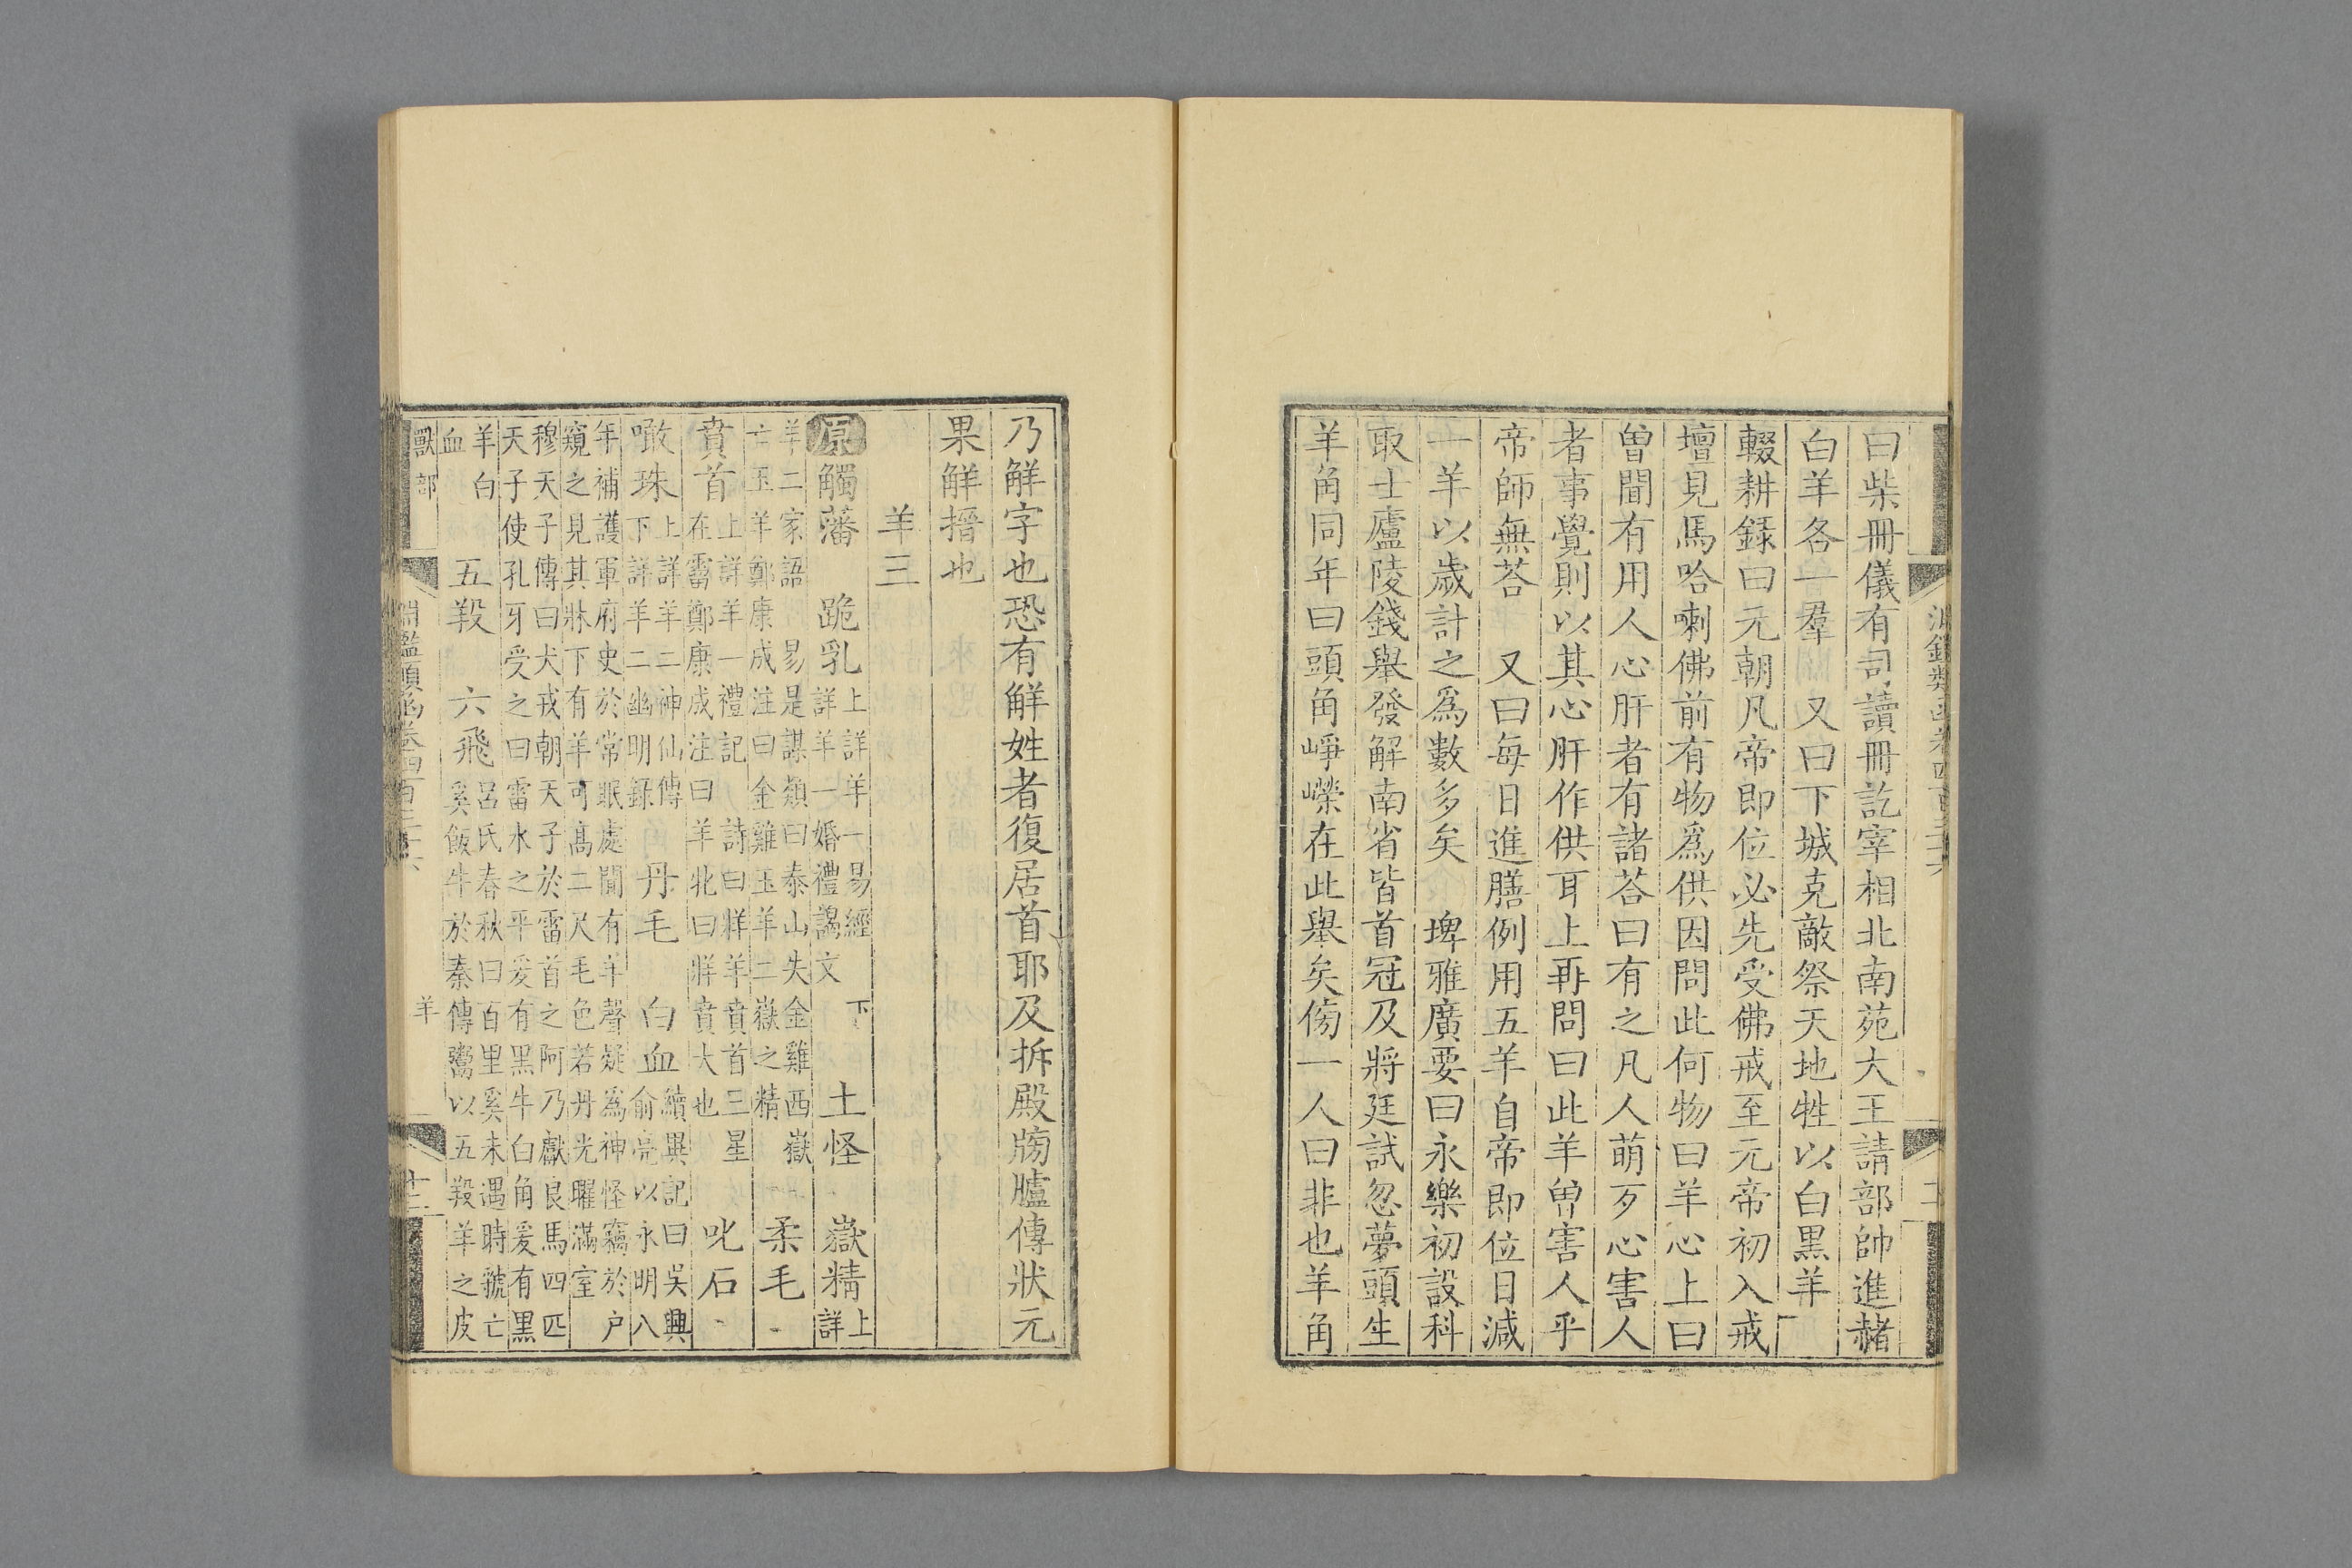 曰柴冊儀有司讀冊訖宰相北南苑大王請部帥進赭
白羊各一羣　又曰下城克敵祭天地牲以白黑羊
輟耕錄曰元朝凡帝即位必先受佛戒至元帝初入戒
壇見馬哈喇佛前有物爲供因問此何物曰羊心上曰
曾聞有用人心肝者有諸荅曰有之凡人萌歹心害人
者事覺則以其心肝作供耳上再問曰此羊曾害人乎
帝師無荅　又曰每日進膳例用五羊自帝即位日減
一羊以歲計之爲數多矣　埤雅廣要曰永樂初設科
取士廬陵錢舉發解南省皆首冠及將廷試忽夢頭生
羊角同年曰頭角崢嶸在此舉矣傍一人曰非也羊角
乃解字也恐有解姓者復居首耶及拆殿牓臚傳狀元
果解搢也
羊三
原觸藩　跪乳上詳羊一易經　下詳羊一婚禮謁文　土怪　嶽精上詳
羊二家語　易是謀類曰泰山失金雞西嶽亡玉羊鄭康成注曰金雞玉羊二嶽之精　柔毛
賁首上詳羊一禮記　詩曰牂羊賁首三星在罶鄭康成注曰羊牝曰牂賁大也　叱石
噉珠上詳羊二神仙傳下詳羊二幽明錄　丹毛　白血續異記曰吳興俞亮以永明八
年補護軍府史於常眠處聞有羊聲疑爲神怪竊於户窺之見其牀下有羊可高二尺毛色若丹光曜滿室
穆天子傳曰犬戎朝天子於雷首之阿乃獻良馬四匹天子使孔牙受之曰雷水之平爰有黑牛白角爰有黑
羊白血　五羖　六飛呂氏春秋曰百里奚未遇時虢亡奚飯牛於秦傳鬻以五羖羊之皮
獸部　淵鑑類函卷四百三十六　羊　十三